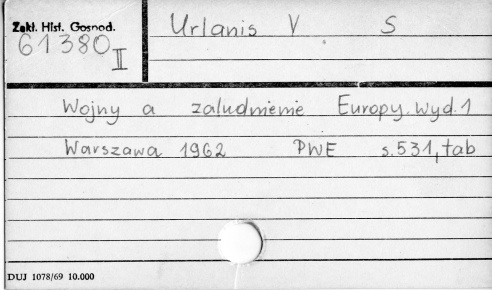 Zakł. Hist. Gospod.
61380
II
Urlanis V. S
Wojny a zaludnienie Europy. Wyd. 1
Warszawa 1962 PWE s. 531, tab
DUJ 1078/69 10.000